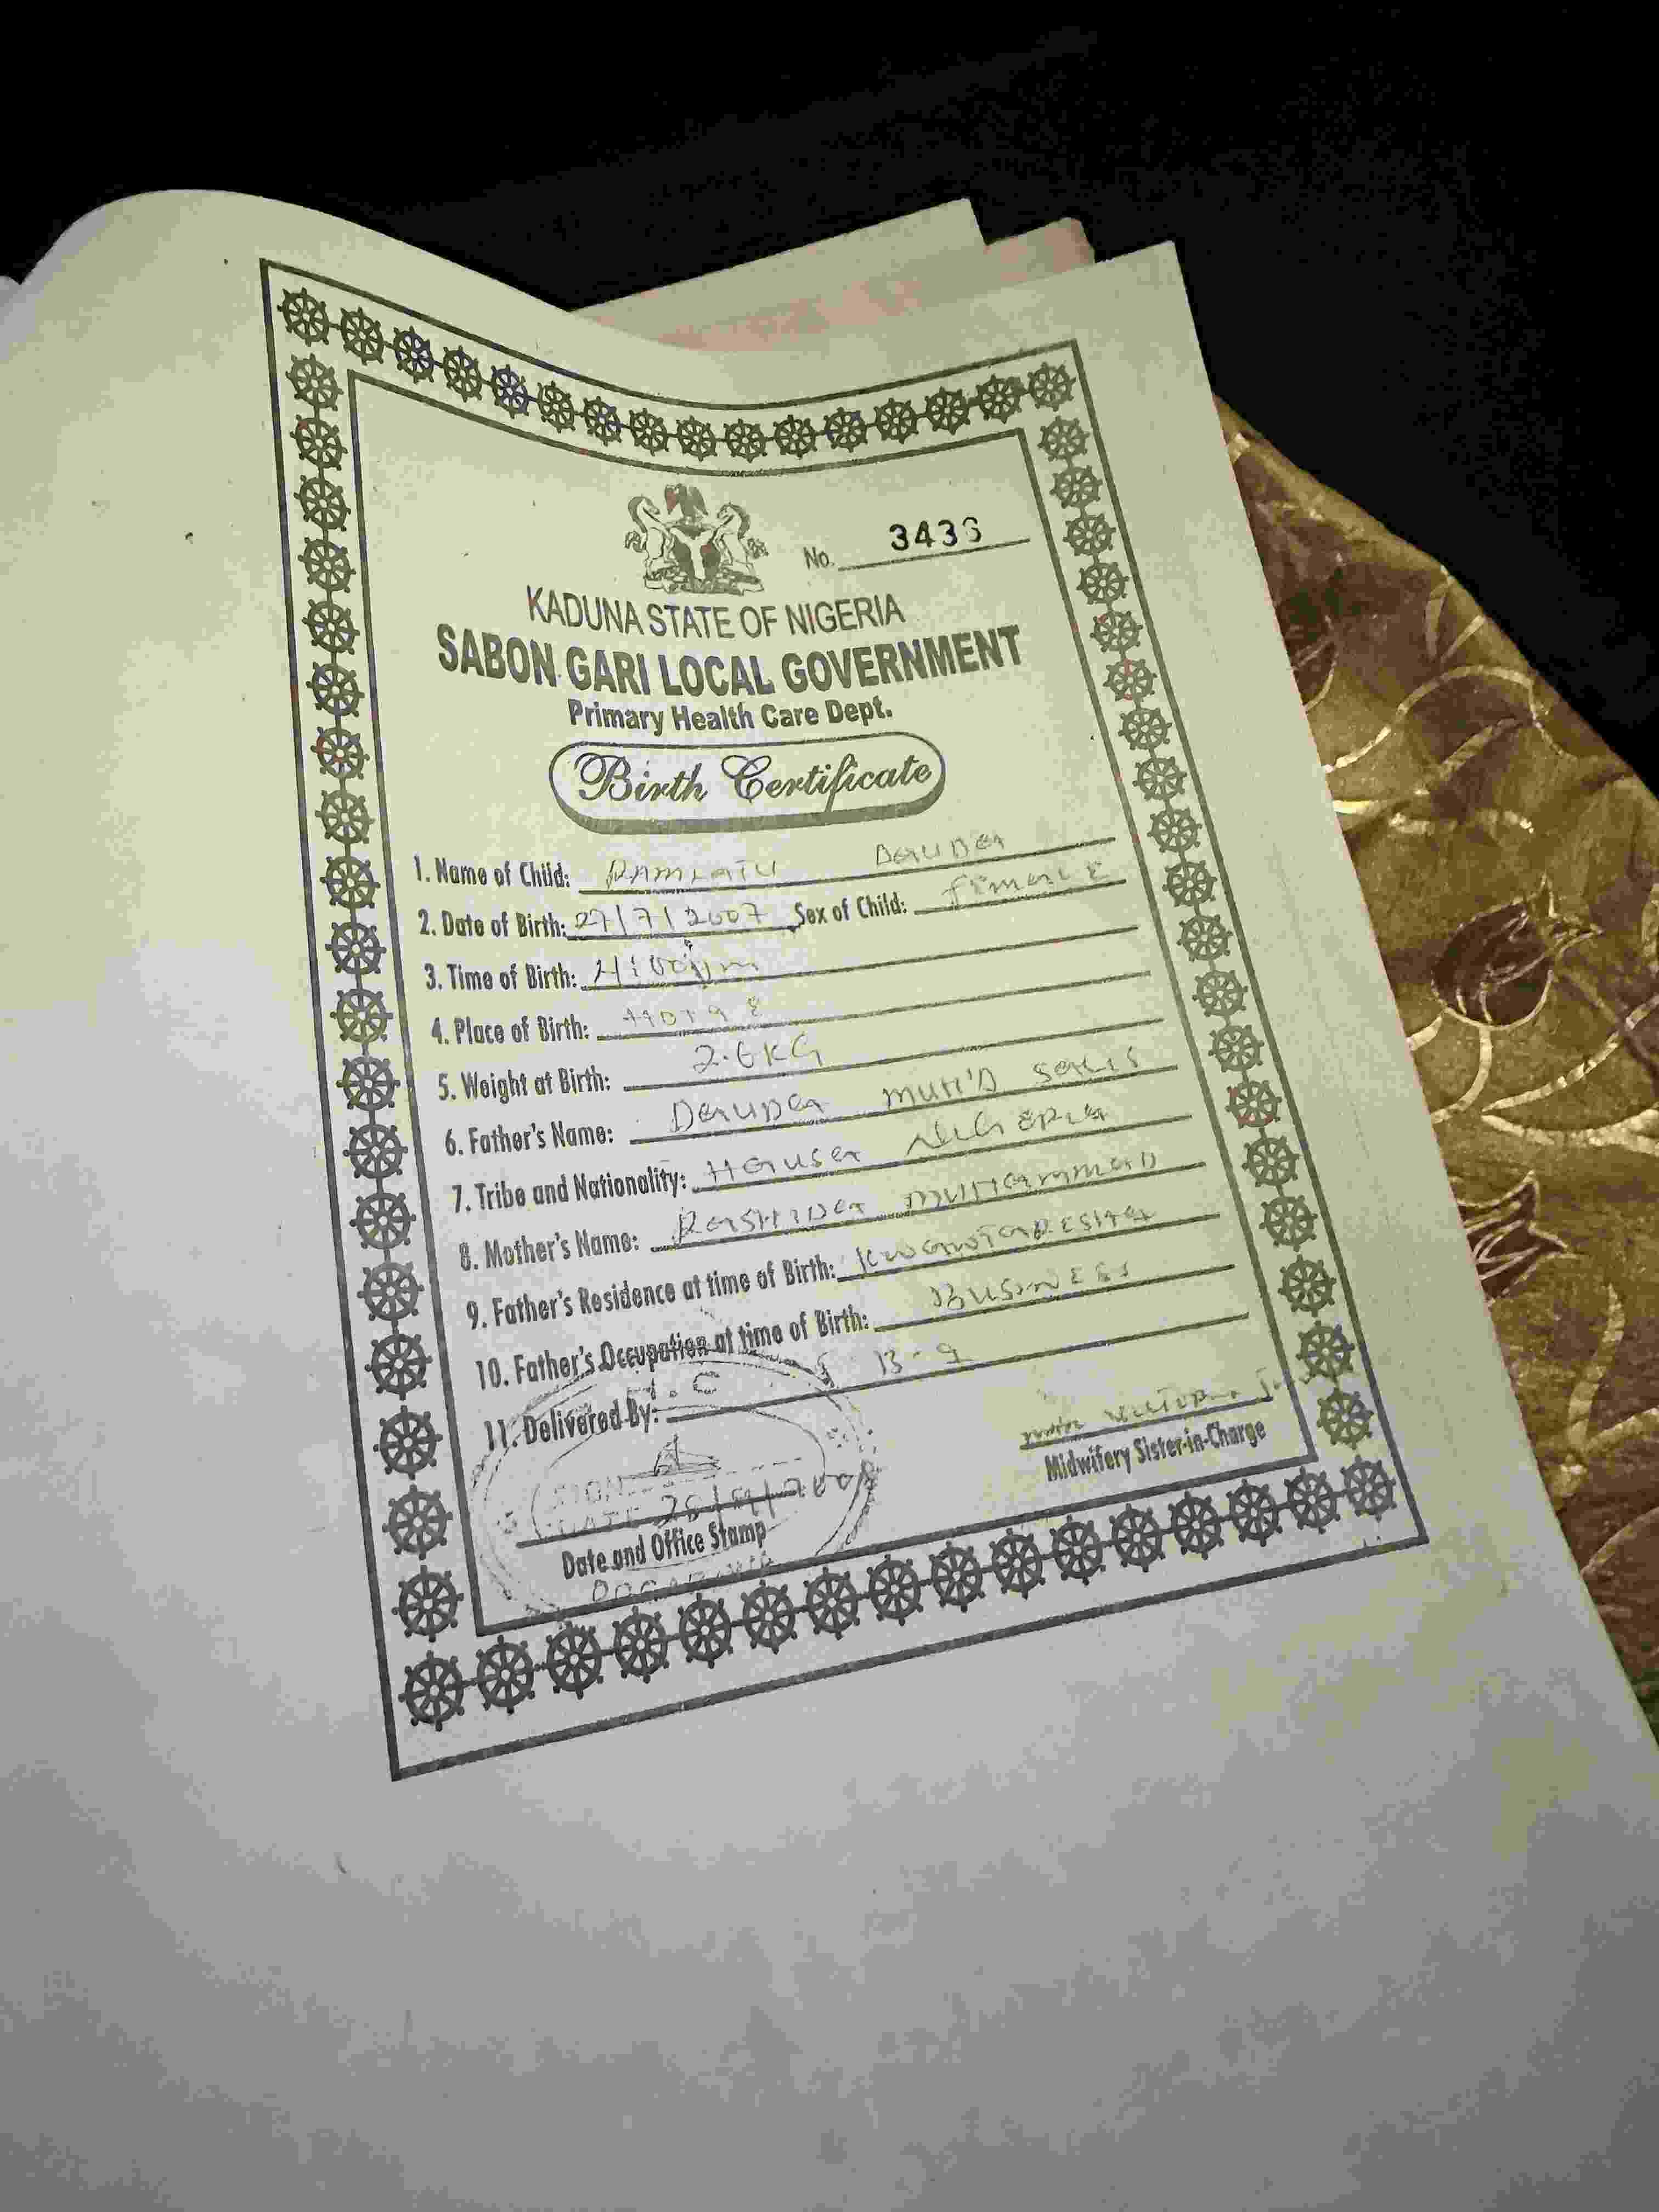 No. 3436
KADUNA STATE OF NIGERIA
SABON GARI LOCAL GOVERNMENT
Primary Health Care Dept.
Birth Certificate
1. Name of Child: RAMLATU DAUDA
2. Date of Birth: 27/7/2007 Sex of Child: female
3. Time of Birth:
4. Place of Birth: HOME
5. Weight at Birth: 2.6KG
6. Father's Name: DAUDA MUH'D SALIS
7. Tribe and Nationality: HAUSA NIGERIA
8. Mother's Name: RASHIDA MUHAMMAD
9. Father's Residence at time of Birth:
10. Father's Occupation at time of Birth: BUSINESS
11. Delivered By:
Midwifery Sister-in-Charge
DATE
Date and Office Stamp